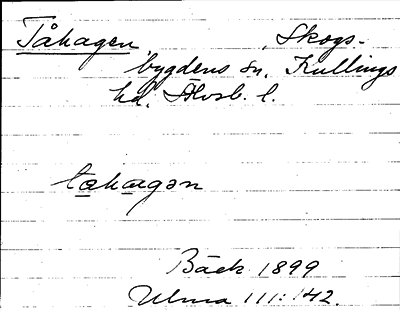 Tåhagen, Skogs-
bygdens sn, Kullings
hd, Älvsb. l.
tohagən
Bäck 1899
Ulma 111:142.